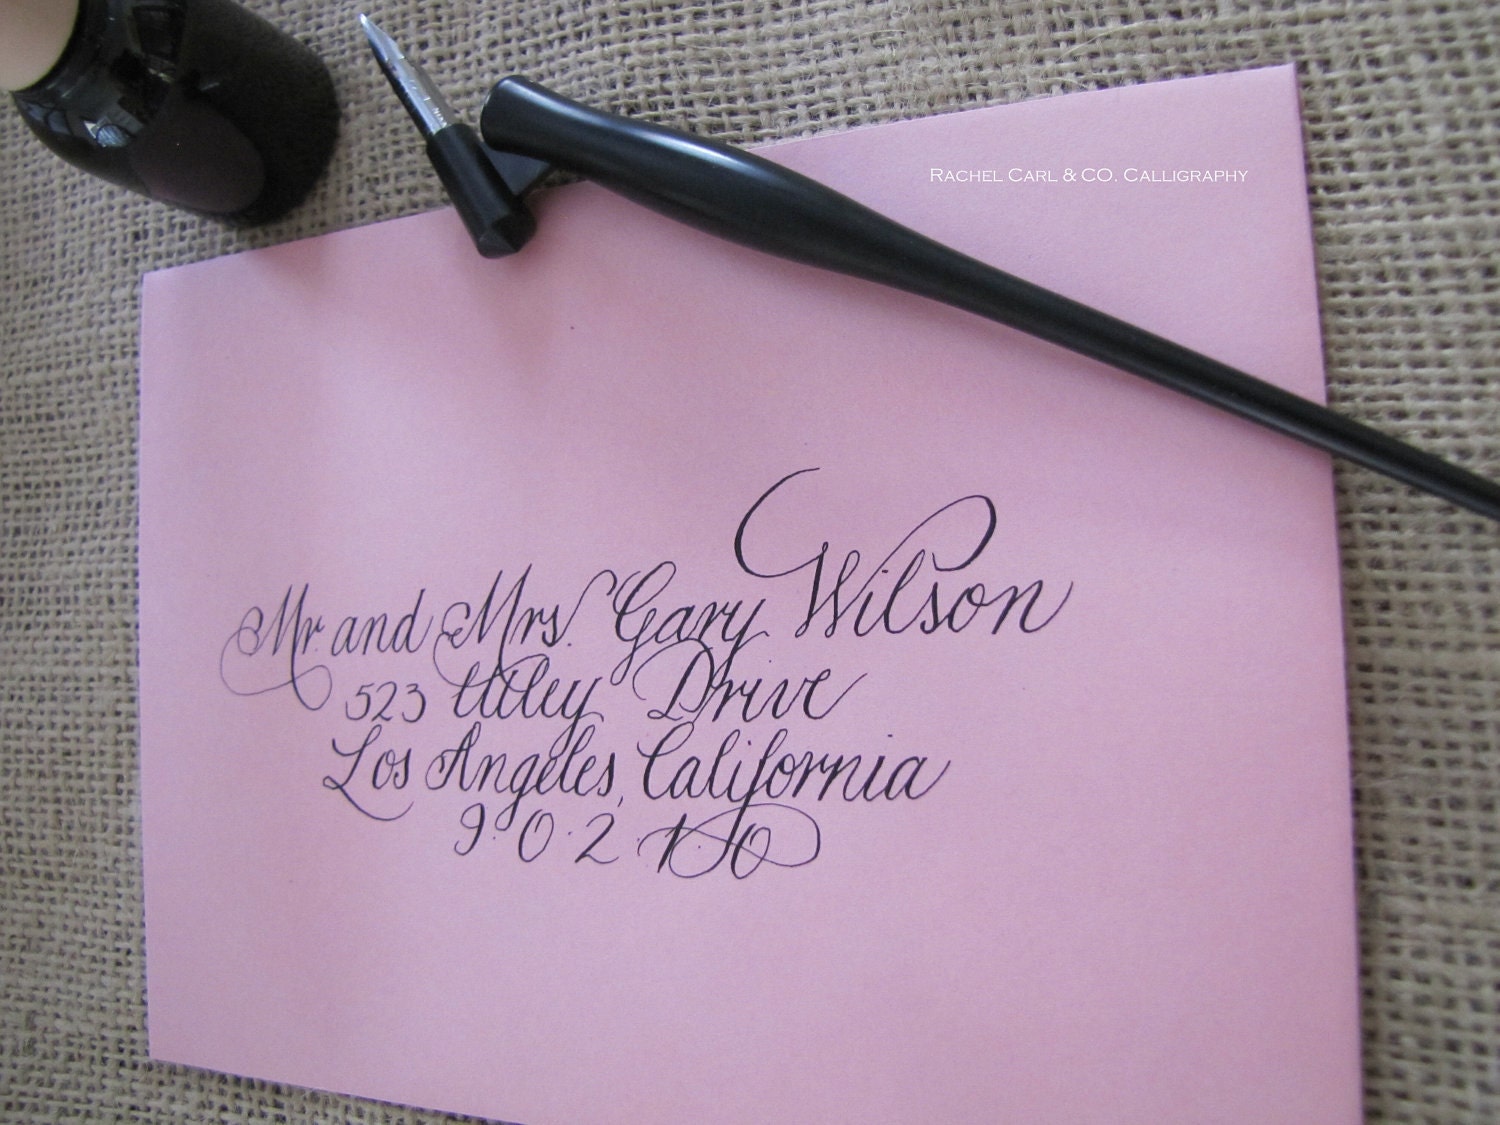 RACHEL CARL & CO. CALLIGRAPHY
Mr. and Mrs. Gary Wilson
523 Drive
Los Angeles, California
9·0·2·1·0